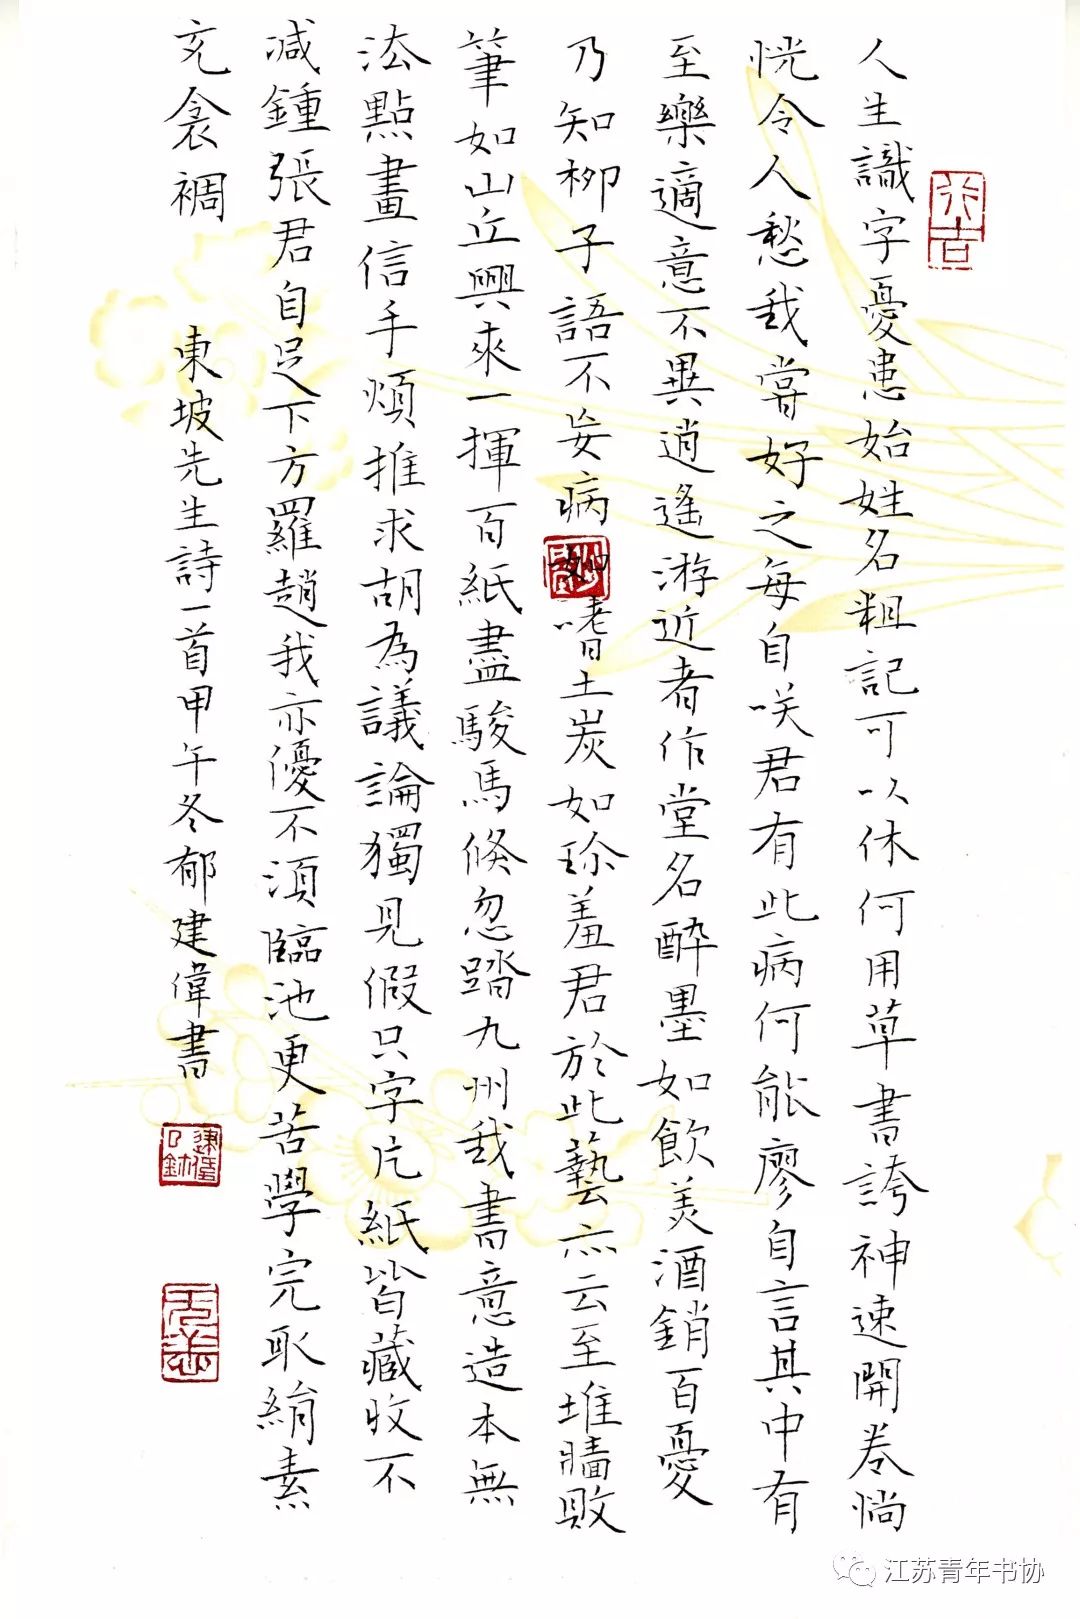 人生識字憂患始姓名粗記可以休何用草書誇神速開卷惝
恍令人愁我嘗好之每自咲君有此病何能廖自言其中有
至樂適意不異逍遙游近者作堂名醉墨如飲美酒銷百憂
乃知栁子語不妄病嗜土炭如珎羞君於此藝亦云至堆牆敗
筆如山丘興來一揮百紙盡駿馬倏忽踏九州我書意造本無
法點畫信手煩推求胡為議論獨見假只字片紙皆藏收不
減鍾張君自足下方羅趙我亦優不須臨池更苦學完取絹素
充衾裯
東坡先生詩一首甲午冬郁建偉書
江苏青年书协